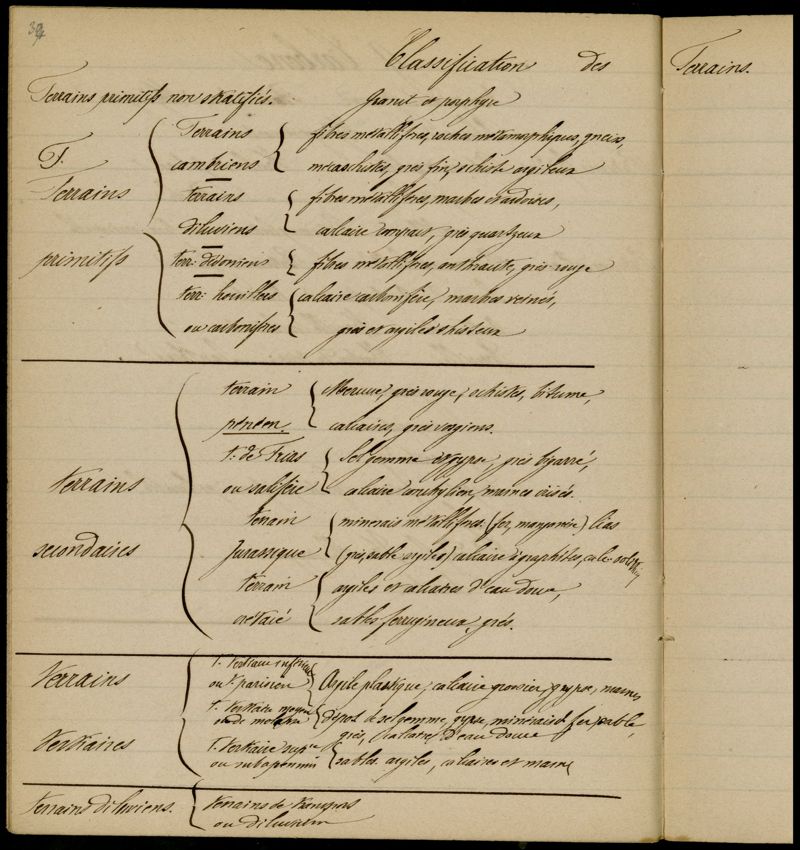 39
Classification des Terrains.
Terrains primitifs non stratifiés. Granit et porphyre
T.
Terrains
primitifs
Terrains filons métallifères, roches métamorphiques, gneiss,
cambriens micaschistes, grès fin, schiste argileux
terrains filons métallifères, marbres et ardoises,
diluviens calcaire compact, grès quartzeux
terr: dévoniens filons métallifères, anthracite, grès rouge
terr: houillers calcaire carbonifère, marbres veinés,
ou carbonifères grès et argiles schisteux
terrains
secondaires
terrain grès rouge, schistes, bitume,
calcaires, grès vosgiens.
t. de Trias Sel gemme et gypse, grès bigarré,
ou salifère calcaire conchylien, marnes irisés.
terrain minerais métallifères (fer, manganèse) lias
Jurassique (grès, sable argiles) calcaire à graphites,
terrain argiles et calcaires d'eau douce,
crétacé sables ferrugineux, grès.
Terrains
tertiaires
T. tertiaire inférieur
ou t. parisien Argile plastique, calcaire grossier, gypse, marnes
T. tertiaire moyen
ou de molasse dépot de sel gemme, gypse, minerais de fer, sable,
grès, calcaires d'eau douce
T. tertiaire supre
ou subapennin sables argiles, calcaires et marnes
terrains diluviens. terrains de transport
ou diluvium